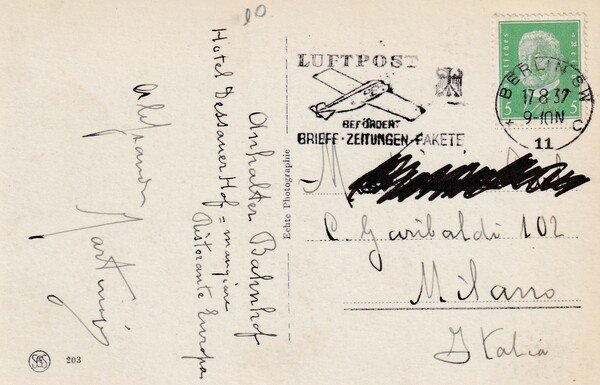 Anhalter Bahnhof
Hotel Dessauer Hof = mangiare
Ristorante Europa
Echte Photographie
203
LUFTPOST
BEFÖRDERT
BRIEFE·ZEITUNGEN·PAKETE
BERLIN SW
17.8.32
9-10 N
11
c
5
5
M
C. Garibaldi 102
Milano
Italia